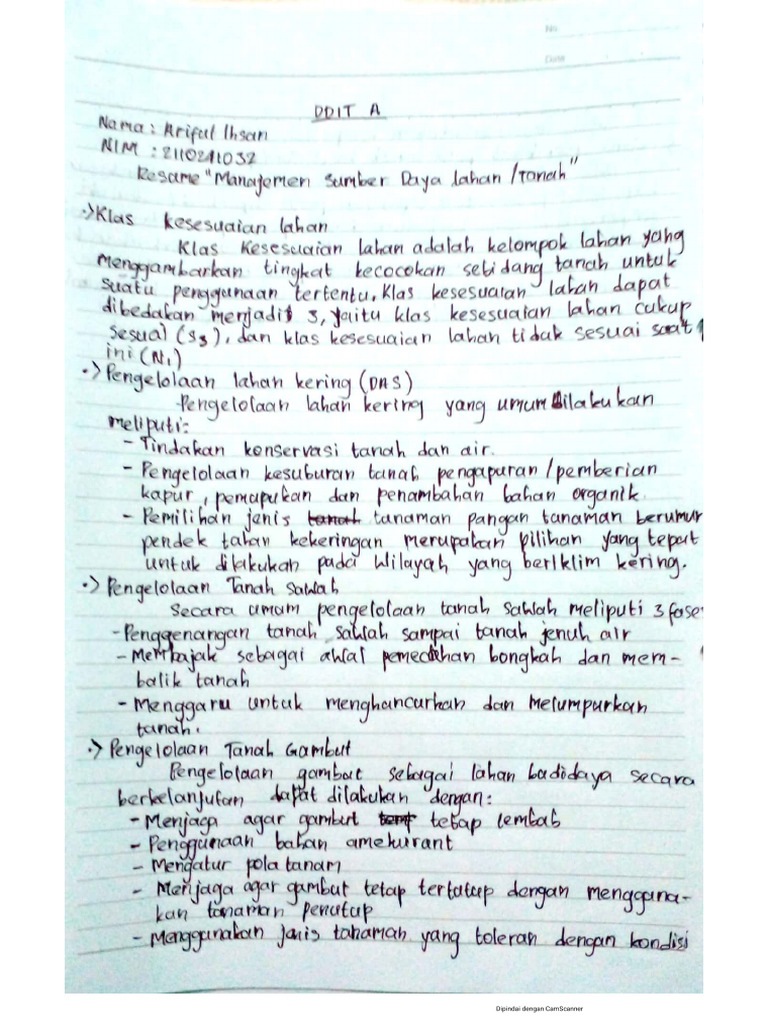 No
Date
DDIT A
Nama : Ariful Ihsan
NIM : 2110241032
Resame "Manajemen Sumber Daya lahan /Tanah"
•> Klas kesesuaian lahan
Klas Kesesuaian lahan adalah kelompok lahan yang
menggambarkan tingkat kecocokan sebidang tanah untuk
suatu penggunaan tertentu. Klas kesesuaian lahan dapat
dibedakan menjadi 3, yaitu klas kesesuaian lahan cukup
sesuai (S3), dan klas kesesuaian lahan tidak sesuai saat
ini (N1)
•> Pengelolaan lahan kering (DAS)
Pengelolaan lahan kering yang umum dilakukan
meliputi:
- Tindakan konservasi tanah dan air.
- Pengelolaan kesuburan tanah, pengapuran /pemberian
kapur, pemupukan dan penambahan bahan organik.
- Pemilihan jenis tanah tanaman pangan tanaman berumur
pendek tahan kekeringan merupakan pilihan yang tepat
untuk dilakukan pada wilayah yang beriklim kering.
•> Pengelolaan Tanah Sawah
Secara umum pengelolaan tanah sawah meliputi 3 fase
- Penggenangan tanah sawah sampai tanah jenuh air
- Membajak sebagai awal pemecahan bongkah dan mem-
balik tanah
- Menggaru untuk menghancurkan dan melumpurkan
tanah.
•> Pengelolaan Tanah Gambut
Pengelolaan gambut sebagai lahan budidaya secara
berkelanjutan dapat dilakukan dengan:
- Menjaga agar gambut tetap lembab
- Penggunaan bahan amelurant
- Mengatur pola tanam
- Menjaga agar gambut tetap tertutup dengan mengguna-
kan tanaman penutup
- Menggunakan jenis tanaman yang toleran dengan kondisi
Dipindai dengan CamScanner